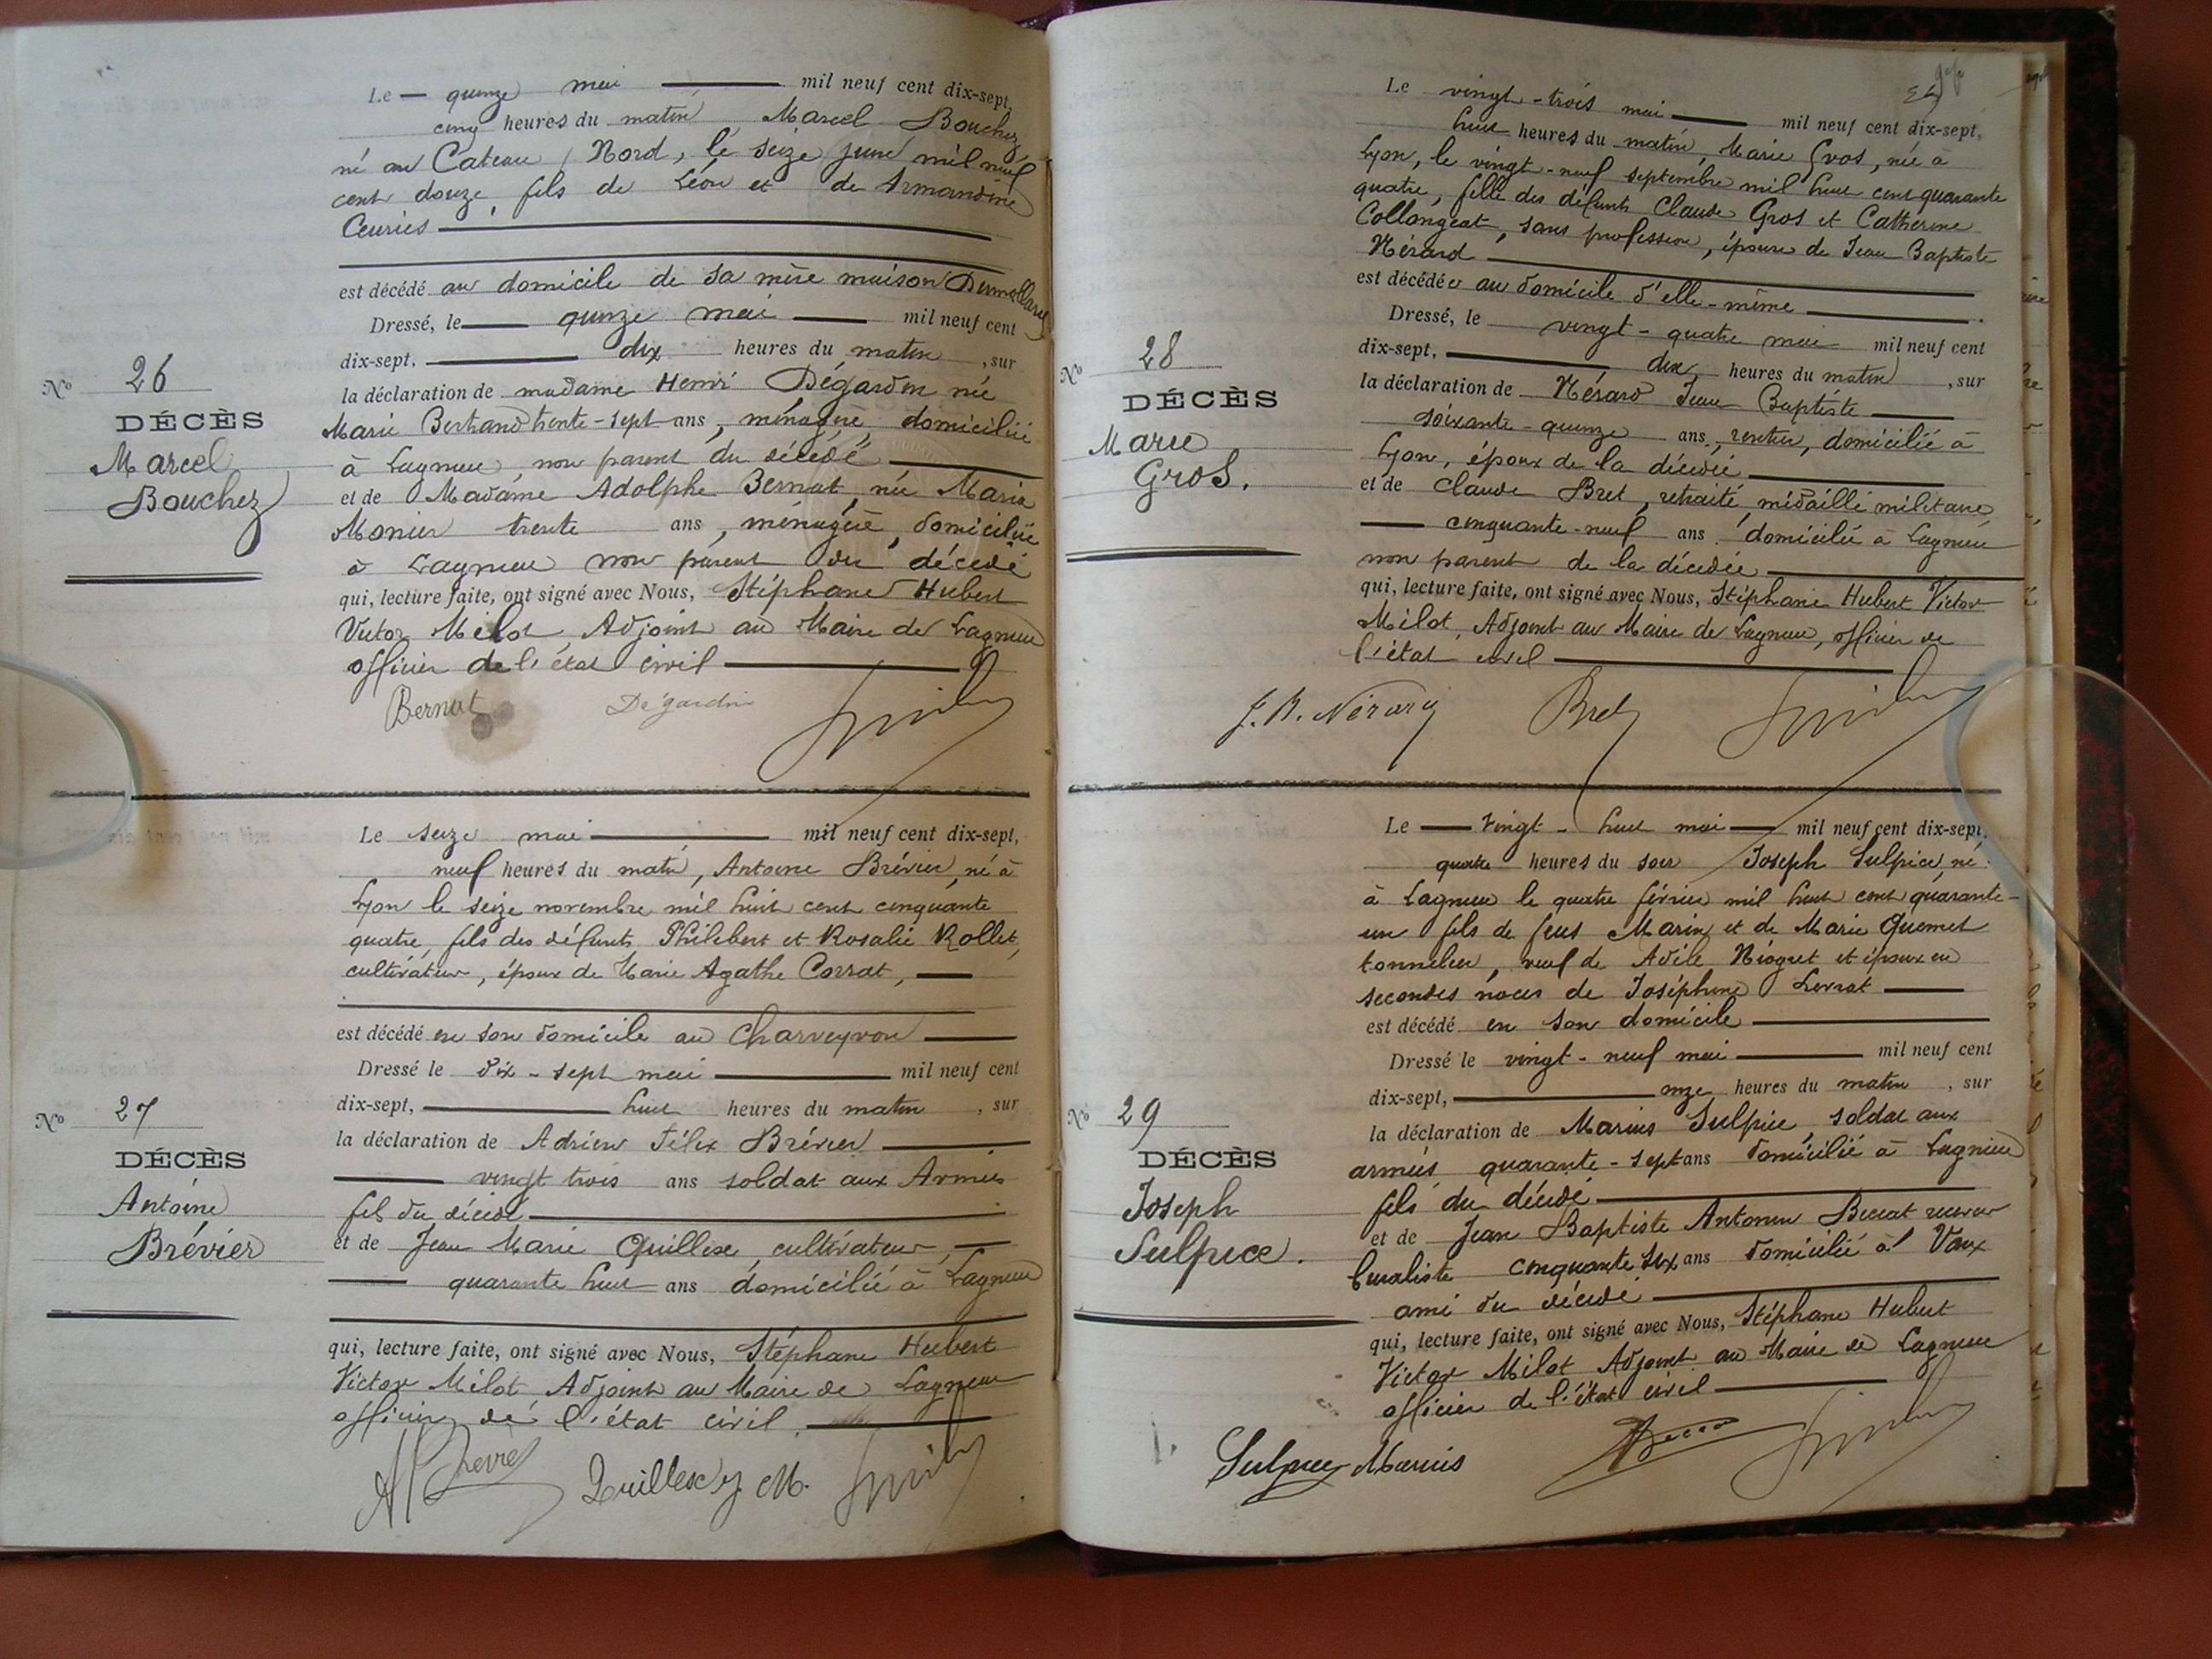 Le — quinze mai — mil neuf cent dix-sept,
cinq heures du matin Marcel Bouchez
né au Cateau, Nord, le seize juin mil neuf
cent douze, fils de Léon et de Armandine
Ceuriés
est décédé au domicile de sa mère maison
Dressé, le — quinze mai — mil neuf cent
dix-sept, — dix heures du matin, sur
la déclaration de madame Henri Dégardin née
Marie Bertrand trente-sept ans, ménagère domiciliée
à Lagnieu, non parent du décédé
et de Madame Adolphe Bernat, née Maria
Monier trente ans, ménagère, domiciliée
à Lagnieu non parent du décédé
qui, lecture faite, ont signé avec Nous, Stéphane Hubert
Victor Milot Adjoint au Maire de Lagnieu
officier de l'état civil
Bernat Dégardin
No 26
DÉCÈS
Marcel
Bouchez
Le seize mai — mil neuf cent dix-sept,
neuf heures du matin, Antoine Brévier, né à
Lyon le seize novembre mil huit cent cinquante
quatre, fils des défunts Philibert et Rosalie Rollet,
cultivateur, époux de Marie Agathe Corrat,
est décédé en son domicile au Charveyron
Dressé le dix-sept mai — mil neuf cent
dix-sept, — huit heures du matin, sur
la déclaration de Adrien Félix Brévier
— vingt trois ans soldat aux Armées
fils du décédé
et de Jean Marie Quillese, cultivateur,
— quarante huit ans domicilié à Lagnieu
qui, lecture faite, ont signé avec Nous, Stéphane Hubert
Victor Milot Adjoint au Maire de Lagnieu
officier de l'état civil
J. M.
No 27
DÉCÈS
Antoine
Brévier
Le vingt-trois mai — mil neuf cent dix-sept,
huit heures du matin, Marie Gros, née à
Lyon, le vingt-neuf septembre mil huit cent quarante
quatre, fille des défunts Claude Gros et Catherine
Collongeat, sans profession, épouse de Jean Baptiste
Nérard
est décédée au domicile d'elle-même
Dressé, le vingt-quatre mai — mil neuf cent
dix-sept, — dix heures du matin, sur
la déclaration de Nérard Jean Baptiste
soixante-quinze ans, rentier, domicilié à
Lyon, époux de la décédée
et de Claude Bret, retraité, médaillé militaire
— cinquante-neuf ans domicilié à Lagnieu
non parent de la décédée
qui, lecture faite, ont signé avec Nous, Stéphane Hubert Victor
Milot, Adjoint au Maire de Lagnieu, officier de
l'état civil
J. B. Nérard Bret
No 28
DÉCÈS
Marie
Gros.
Le — vingt-huit mai — mil neuf cent dix-sept,
quatre heures du soir Joseph Sulpice, né
à Lagnieu le quatre février mil huit cent quarante-
un fils de feus Marin et de Marie Quemet
tonnelier, veuf de Adèle Niogret et époux en
secondes noces de Joséphine Levrat
est décédé en son domicile
Dressé le vingt-neuf mai — mil neuf cent
dix-sept, — onze heures du matin, sur
la déclaration de Marius Sulpice soldat aux
armées quarante-sept ans domicilié à Lagnieu
fils du décédé
et de Jean Baptiste Antonin Beccat receveur
buraliste cinquante six ans domicilié à Vaux
ami du décédé
qui, lecture faite, ont signé avec Nous, Stéphane Hubert
Victor Milot Adjoint au Maire de Lagnieu
officier de l'état civil
Sulpice Marius
No 29
DÉCÈS
Joseph
Sulpice.